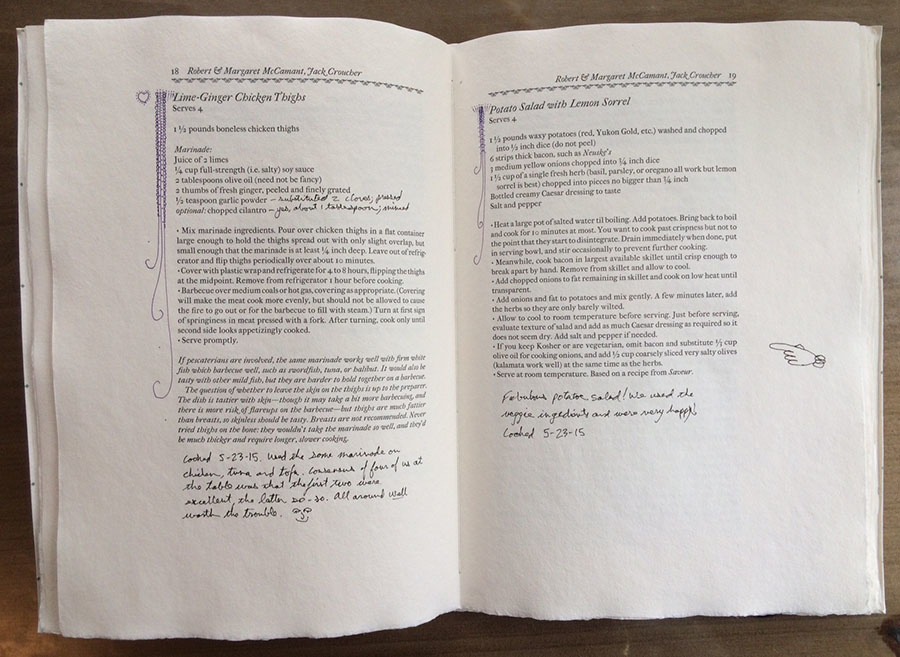 18 Robert & Margaret McCamant, Jack Croucher
Lime-Ginger Chicken Thighs
Serves 4
1 ½ pounds boneless chicken thighs
Marinade:
Juice of 2 limes
¼ cup full-strength (i.e. salty) soy sauce
2 tablespoons olive oil (need not be fancy)
2 thumbs of fresh ginger, peeled and finely grated
½ teaspoon garlic powder – substituted 2 cloves, pressed
optional: chopped cilantro – yes, about 1 tablespoon, minced
• Mix marinade ingredients. Pour over chicken thighs in a flat container
large enough to hold the thighs spread out with only slight overlap, but
small enough that the marinade is at least ¼ inch deep. Leave out of refrig-
erator and flip thighs periodically over about 10 minutes.
• Cover with plastic wrap and refrigerate for 4 to 8 hours, flipping the thighs
at the midpoint. Remove from refrigerator 1 hour before cooking.
• Barbecue over medium coals or hot gas, covering as appropriate. (Covering
will make the meat cook more evenly, but should not be allowed to cause
the fire to go out or for the barbecue to fill with steam.) Turn at first sign
of springiness in meat pressed with a fork. After turning, cook only until
second side looks appetizingly cooked.
• Serve promptly.
If pescaterians are involved, the same marinade works well with firm white
fish which barbecue well, such as swordfish, tuna, or halibut. It would also be
tasty with other mild fish, but they are harder to hold together on a barbecue.
The question of whether to leave the skin on the thighs is up to the preparer.
The dish is tastier with skin—though it may take a bit more barbecuing, and
there is more risk of flareups on the barbecue—but thighs are much fattier
than breasts, so skinless should be tasty. Breasts are not recommended. Never
tried thighs on the bone: they wouldn't take the marinade so well, and they'd
be much thicker and require longer, slower cooking.
Cooked 5-23-15. Used the same marinade on
chicken, tuna and tofu. Consensus of four of us at
the table was that the first two were
excellent, the latter so-so. All around well
worth the trouble.
Robert & Margaret McCamant, Jack Croucher 19
Potato Salad with Lemon Sorrel
Serves 4
1 ½ pounds waxy potatoes (red, Yukon Gold, etc.) washed and chopped
into ½ inch dice (do not peel)
6 strips thick bacon, such as Neuske's
1 medium yellow onions chopped into ¼ inch dice
1 ½ cup of a single fresh herb (basil, parsley, or oregano all work but lemon
sorrel is best) chopped into pieces no bigger than ¼ inch
Bottled creamy Caesar dressing to taste
Salt and pepper
• Heat a large pot of salted water til boiling. Add potatoes. Bring back to boil
and cook for 10 minutes at most. You want to cook past crispness but not to
the point that they start to disintegrate. Drain immediately when done, put
in serving bowl, and stir occasionally to prevent further cooking.
• Meanwhile, cook bacon in largest available skillet until crisp enough to
break apart by hand. Remove from skillet and allow to cool.
• Add chopped onions to fat remaining in skillet and cook on low heat until
transparent.
• Add onions and fat to potatoes and mix gently. A few minutes later, add
the herbs so they are only barely wilted.
• Allow to cool to room temperature before serving. Just before serving,
evaluate texture of salad and add as much Caesar dressing as required so it
does not seem dry. Add salt and pepper if needed.
• If you keep Kosher or are vegetarian, omit bacon and substitute ½ cup
olive oil for cooking onions, and add ½ cup coarsely sliced very salty olives
(kalamata work well) at the same time as the herbs.
• Serve at room temperature. Based on a recipe from Saveur.
Fabulous potato salad! We used the
veggie ingredients and were very happy!
Cooked 5-23-15